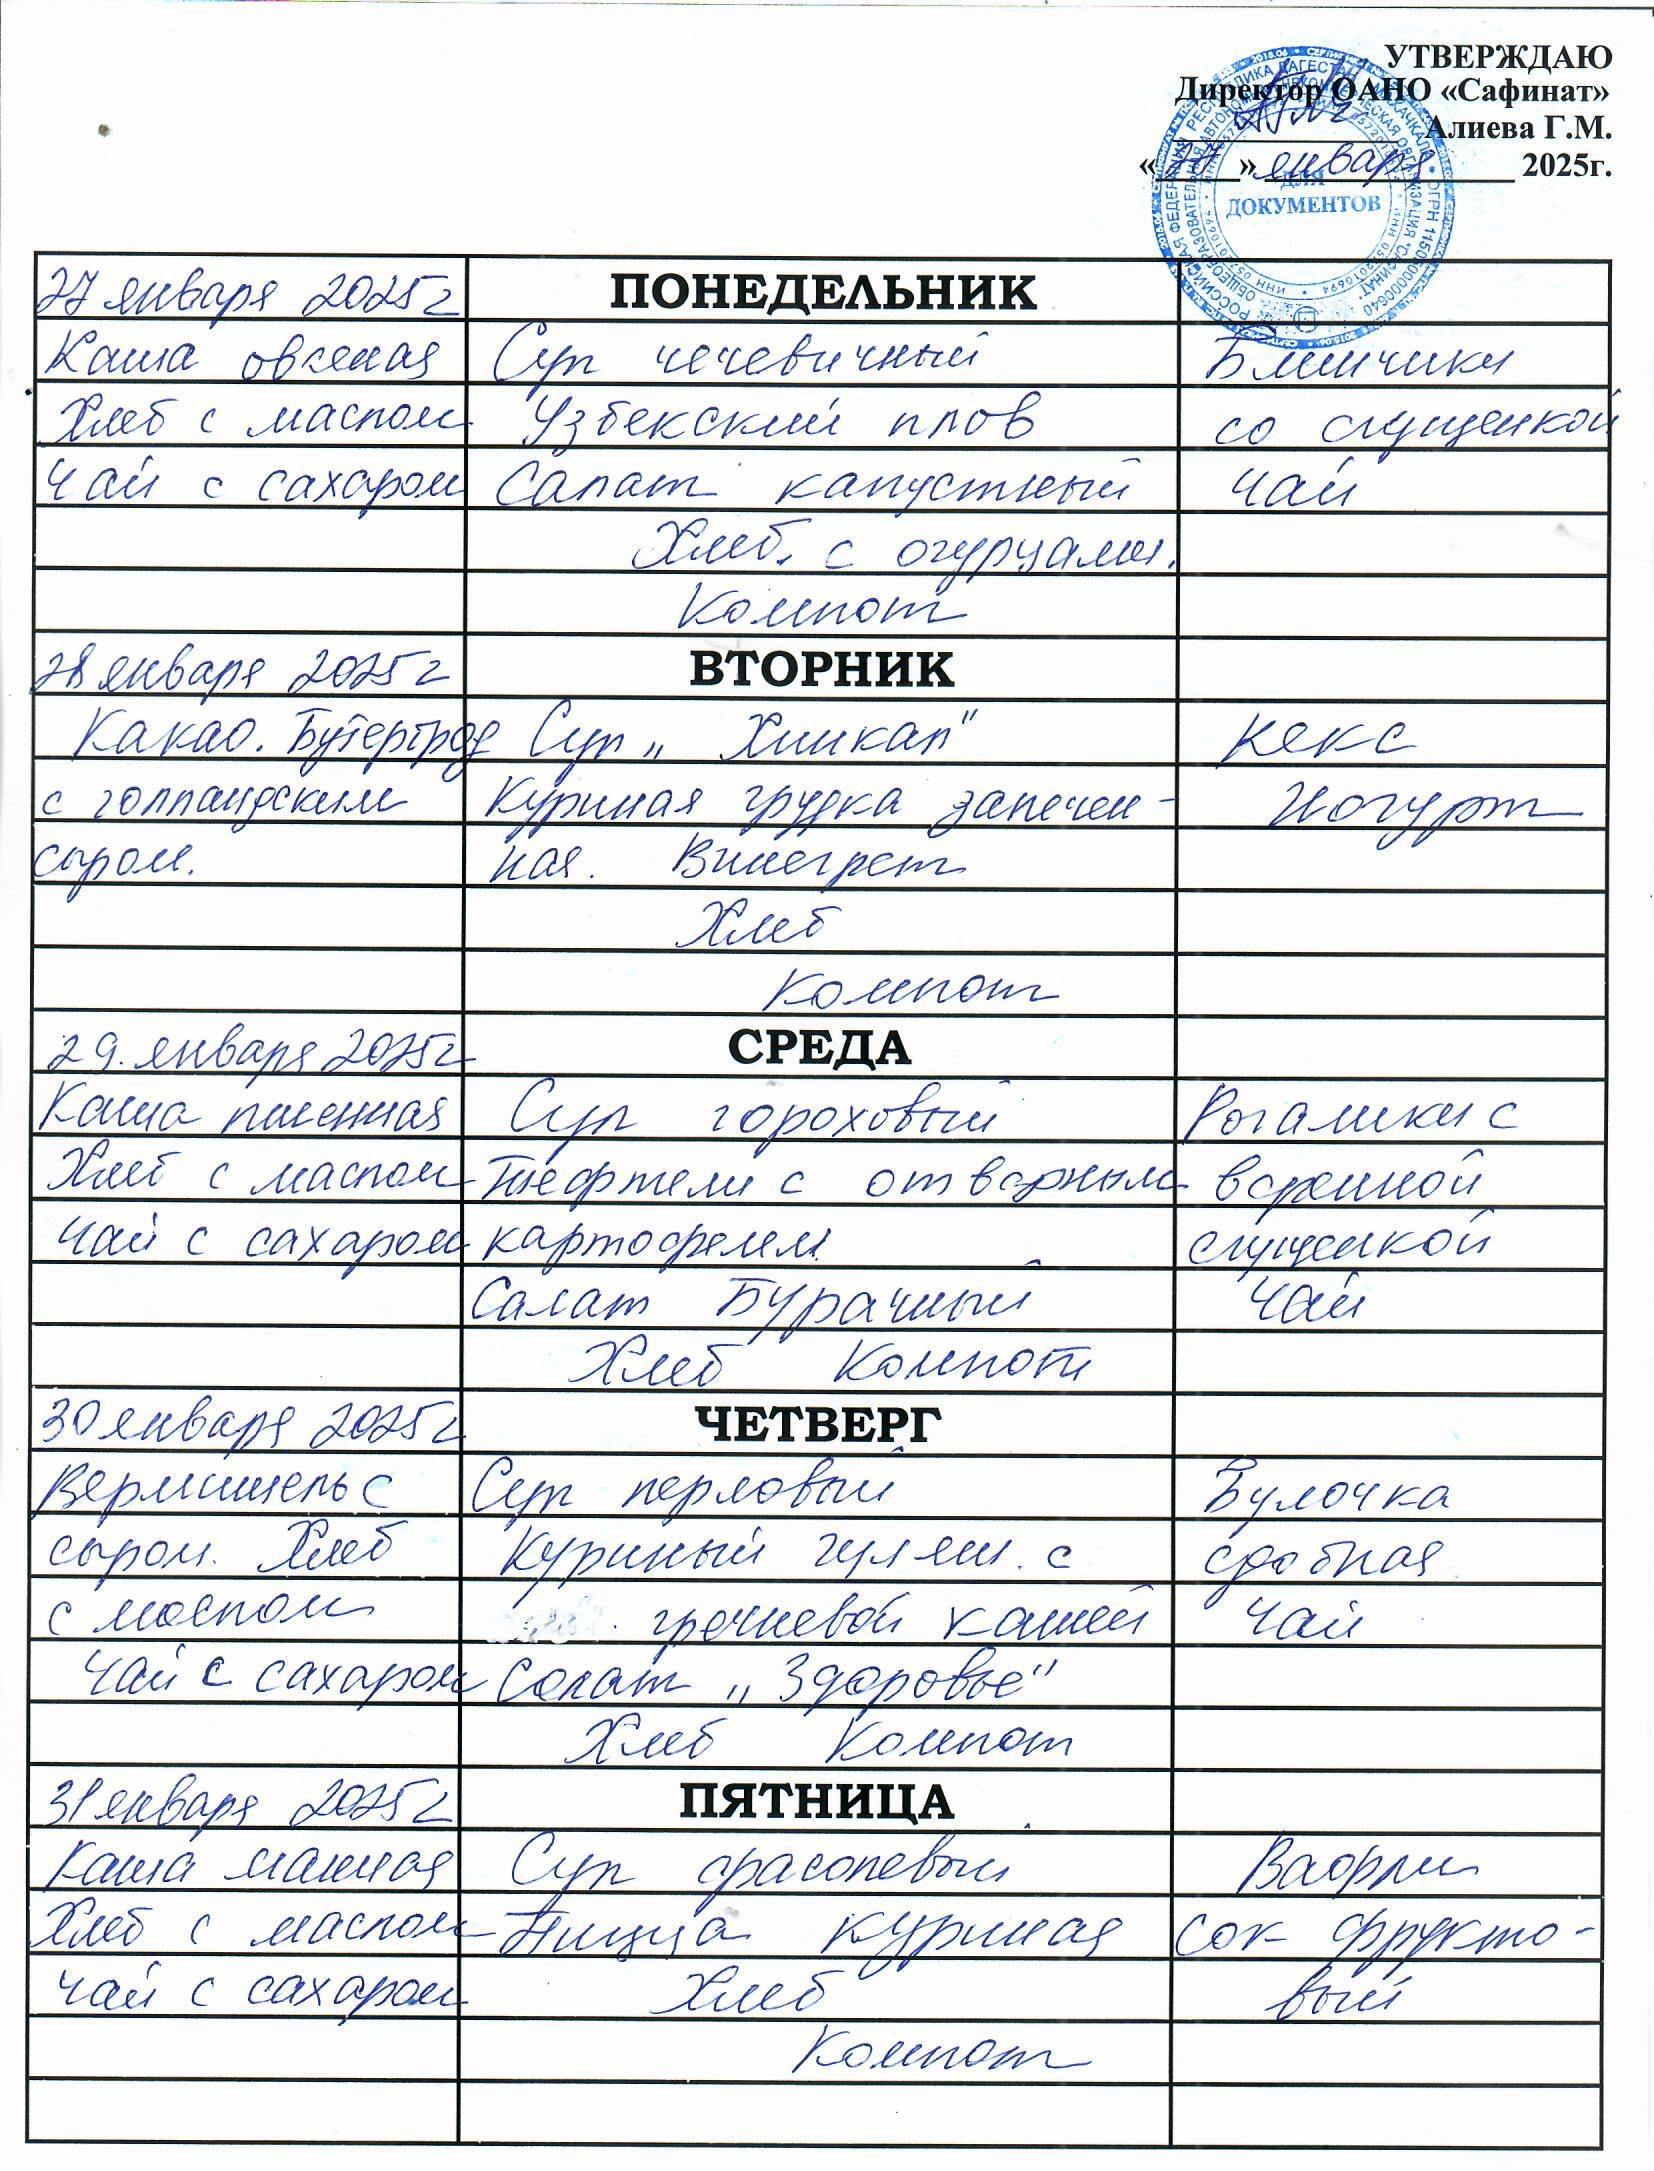 УТВЕРЖДАЮ
Директор ОАНО «Сафинат»
Алиева Г.М.
«27» января 2025г.
ДЛЯ
ДОКУМЕНТОВ
27 января 2025г ПОНЕДЕЛЬНИК
Каша овсяная Суп чечевичный Блинчики
Хлеб с маслом Узбекский плов со сгущенкой
Чай с сахаром Салат капустный Чай
Хлеб. с огурцами.
Компот
28 января 2025г ВТОРНИК
Какао. Бутерброд Суп „Хинкал" Кекс
с голландским Куриная грудка запечен- Йогурт
сыром. ная. Винегрет
Хлеб
Компот
29. января 2025г СРЕДА
Каша пшенная Суп гороховый Рогалики с
Хлеб с маслом Тефтели с отварным вареной
Чай с сахаром картофелем. сгущенкой
Салат Бурачный Чай
Хлеб Компот
30 января 2025г ЧЕТВЕРГ
Вермишель с Суп перловый Булочка
сыром. Хлеб Куриный гуляш. с сдобная
с маслом гречневой кашей Чай
Чай с сахаром Салат „Здоровье"
Хлеб Компот
31 января 2025г ПЯТНИЦА
Каша манная Суп фасолевый Вафли
Хлеб с маслом Пицца куриная Сок фрукто-
Чай с сахаром Хлеб вый
Компот